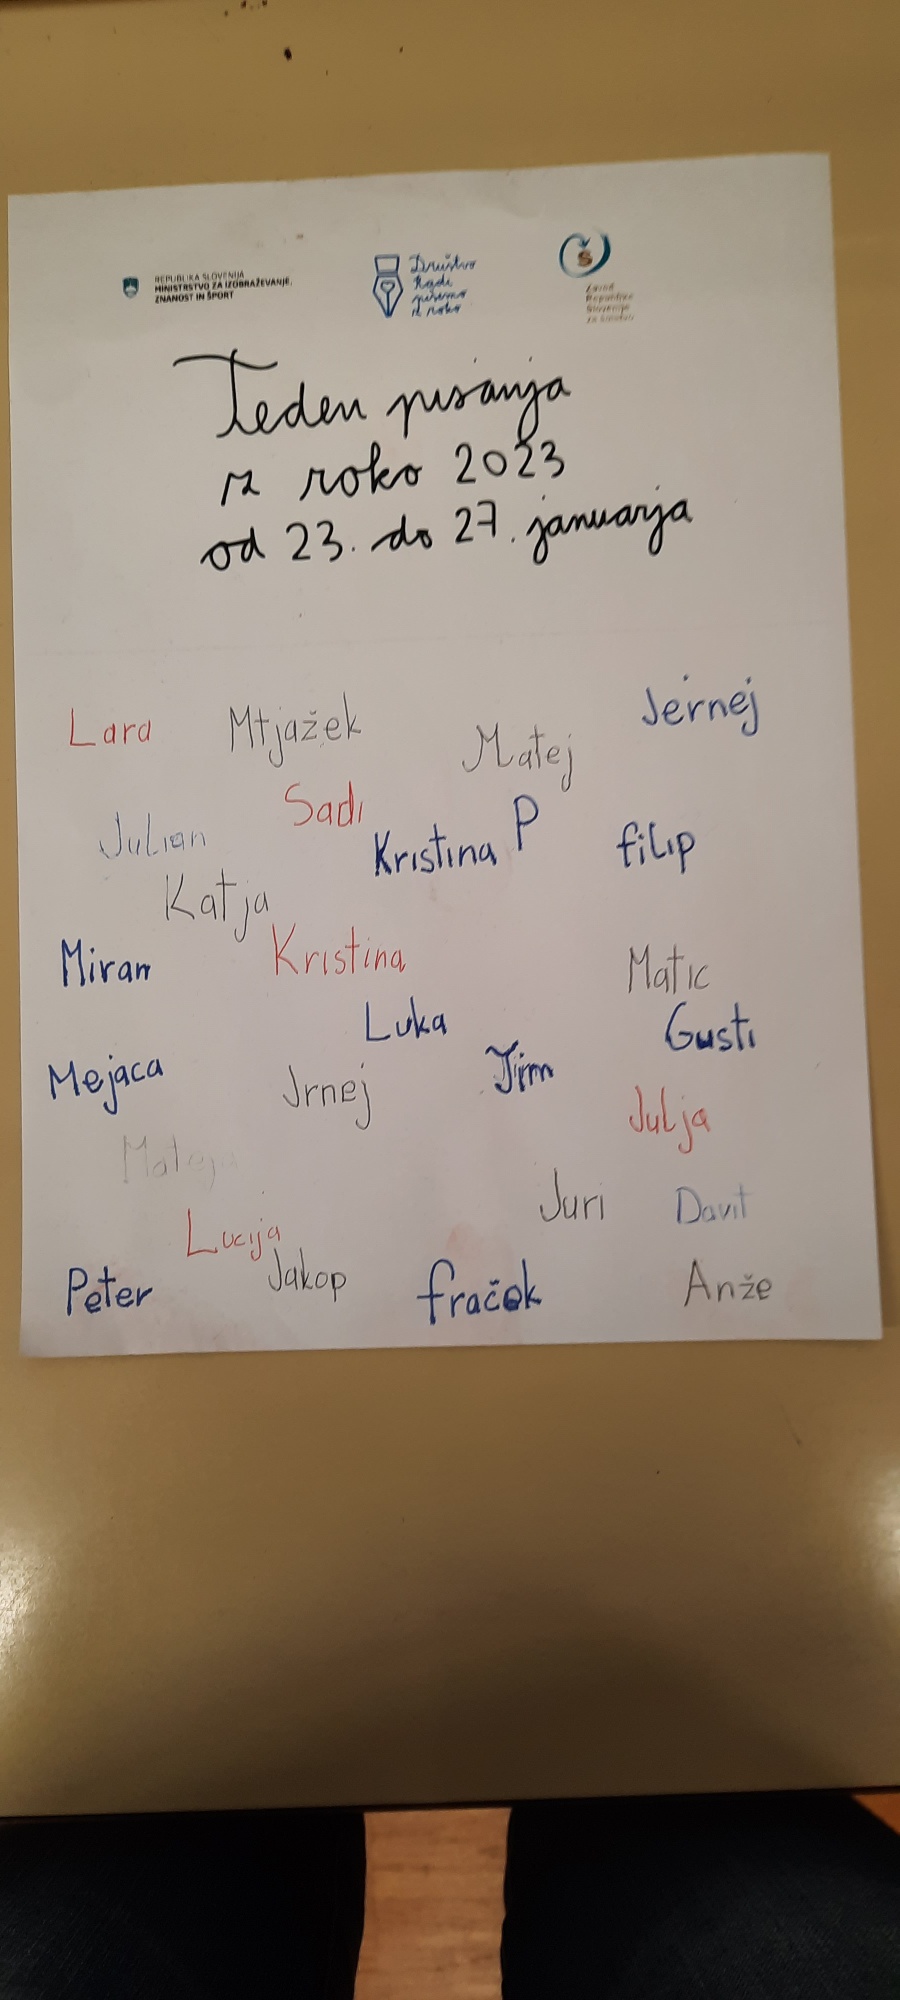 REPUBLIKA SLOVENIJA
MINISTRSTVO ZA IZOBRAŽEVANJE,
ZNANOST IN ŠPORT
Društvo
Radi
pišemo
z roko
Š
Zavod
Republike
Slovenije
za šolstvo
Teden pisanja
z roko 2023
od 23. do 27. januarja
Lara Mtjažek Matej Jernej
Sadi
Julian Kristina P filip
Katja
Miran Kristina Matic
Luka Gusti
Mejaca Jrnej Tim
Julja
Mateja
Juri Davit
Lucija
Peter Jakop fračok Anže